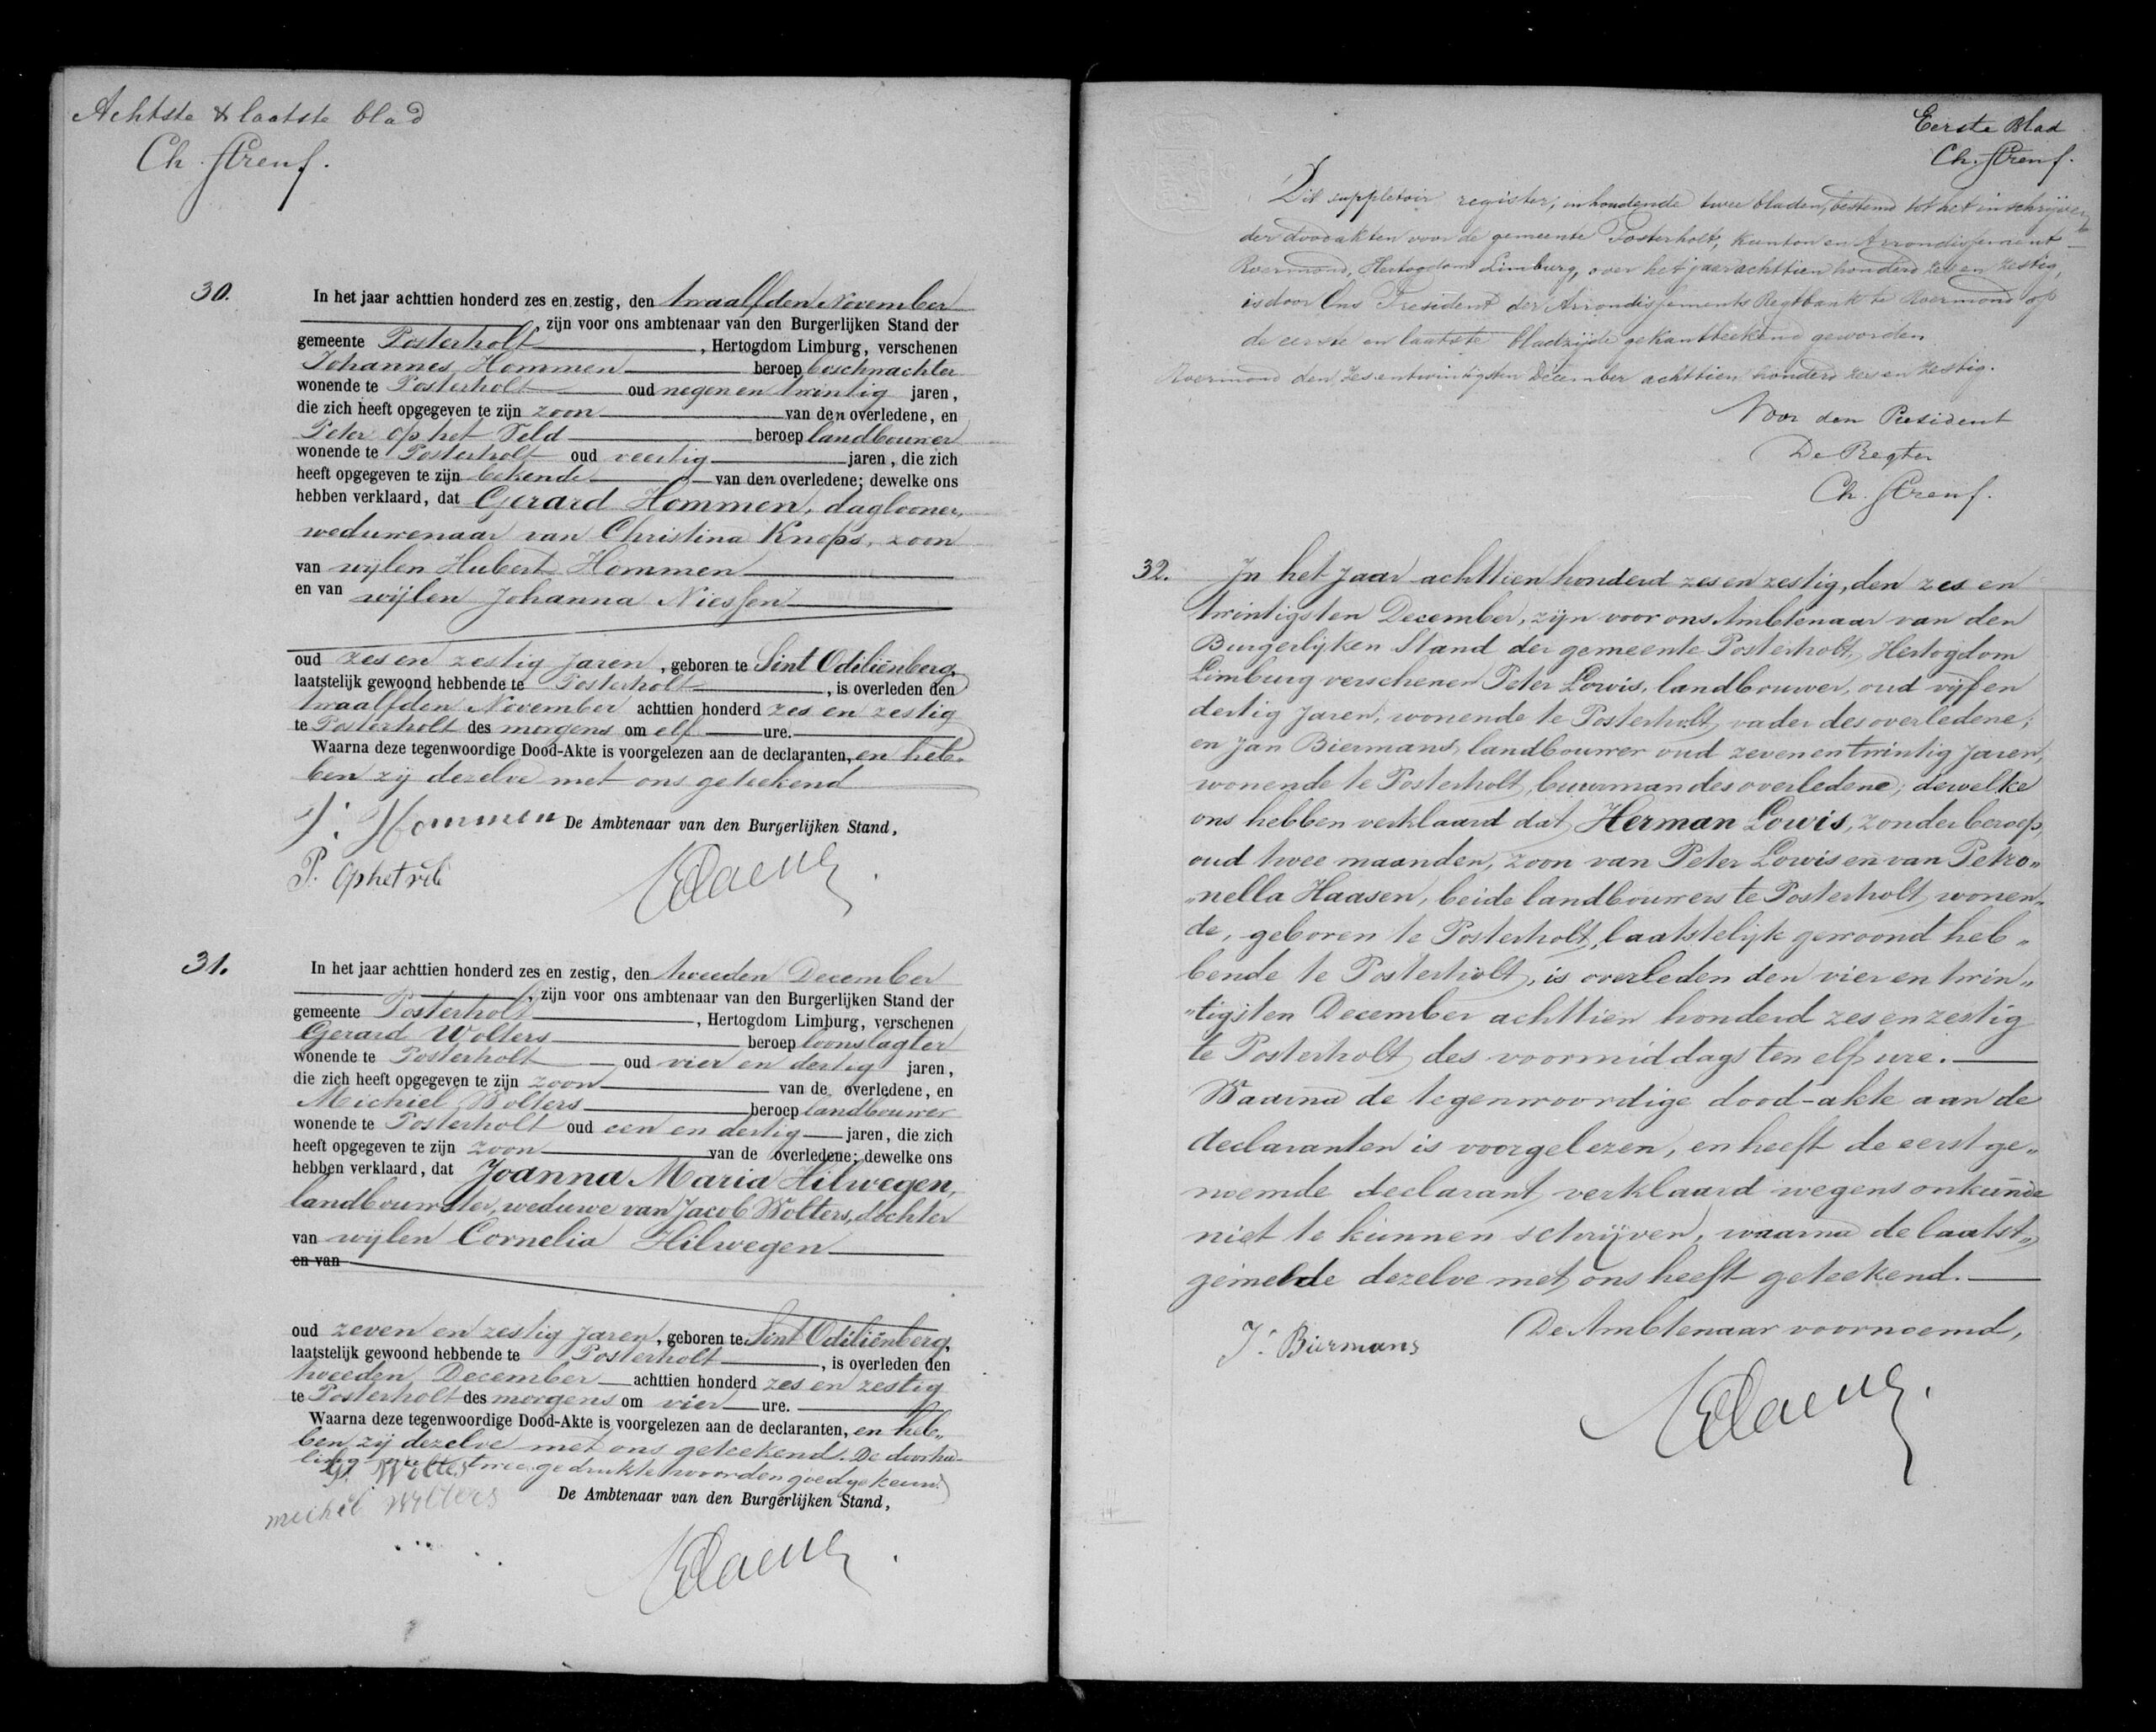 Achtste & laatste blad
Ch. Strens.
30.
In het jaar achttien honderd zes en zestig, den twaalfden November
, zijn voor ons ambtenaar van den Burgerlijken Stand der
gemeente Posterholt , Hertogdom Limburg, verschenen
Johannes Hommen beroep
wonende te Posterholt oud negen en twintig jaren,
die zich heeft opgegeven te zijn zoon van den overledene, en
Peter op het Veld beroep landbouwer
wonende te Posterholt oud veertig jaren, die zich
heeft opgegeven te zijn bekende van den overledene; dewelke ons
hebben verklaard, dat Gerard Hommen, daglooner,
weduwenaar van Christina Knops, zoon
van wijlen Hubert Hommen
en van wijlen Johanna Niessen
oud zes en zestig jaren, geboren te Sint Odiliënberg,
laatstelijk gewoond hebbende te Posterholt , is overleden den
twaalfden November achttien honderd zes en zestig
te Posterholt des morgens om elf ure.
Waarna deze tegenwoordige Dood-Akte is voorgelezen aan de declaranten, en heb-
ben zij dezelve met ons geteekend
J. Hommen De Ambtenaar van den Burgerlijken Stand,
P. Ophetveld
31.
In het jaar achttien honderd zes en zestig, den tweeden December
, zijn voor ons ambtenaar van den Burgerlijken Stand der
gemeente Posterholt , Hertogdom Limburg, verschenen
Gerard Wolters beroep loonslagter
wonende te Posterholt oud vier en dertig jaren,
die zich heeft opgegeven te zijn zoon van de overledene, en
Michiel Wolters beroep landbouwer
wonende te Posterholt oud een en dertig jaren, die zich
heeft opgegeven te zijn zoon van de overledene; dewelke ons
hebben verklaard, dat Joanna Maria Hilwegen,
landbouwster, weduwe van Jacob Wolters, dochter
van wijlen Cornelia Hilwegen
en van
oud zeven en zestig jaren, geboren te Sint Odiliënberg,
laatstelijk gewoond hebbende te Posterholt , is overleden den
tweeden December achttien honderd zes en zestig
te Posterholt des morgens om vier ure.
Waarna deze tegenwoordige Dood-Akte is voorgelezen aan de declaranten, en heb„
ben zij dezelve met ons geteekend. De doorha-
ling twee gedrukte woorden goedgekeurd
G. Wolters
De Ambtenaar van den Burgerlijken Stand,
michel Wolters
Eerste Blad
Ch. Strens.
Dit suppletoir register, inhoudende twee bladen, bestemd tot het inschrijven
der doodakten voor de gemeente Posterholt, kanton en Arrondissement
Roermond, Hertogdom Limburg, over het jaar achttien honderd zes en zestig,
is door Ons President der Arrondissements Regtbank te Roermond op
de eerste en laatste bladzijde gekantteekend geworden
Roermond den zes entwintigsten December achttien honderd zes en zestig.
Voor den President
De Regter
Ch. Strens.
32.
In het jaar achttien honderd zes en zestig, den zes en
twintigsten December, zijn voor ons Ambtenaar van den
Burgerlijken Stand der gemeente Posterholt, Hertogdom
Limburg verschenen Peter Lowis, landbouwer, oud vijf en
dertig jaren, wonende te Posterholt, vader des overledene;
en Jan Biermans, landbouwer oud zeven en twintig jaren,
wonende te Posterholt, buurman des overledene; dewelke
ons hebben verklaard dat Herman Lowis, zonder beroep,
oud twee maanden, zoon van Peter Lowis en van Petro„
„nella Haasen, beide landbouwers te Posterholt wonen„
de, geboren te Posterholt, laatstelijk gewoond heb„
bende te Posterholt, is overleden den vier en twin„
„tigsten December achttien honderd zes en zestig
te Posterholt des voormiddags ten elf ure.
Waarna de tegenwoordige dood-akte aan de
declaranten is voorgelezen, en heeft de eerst ge„
noemde declarant verklaard wegens onkunde
niet te kunnen schrijven, waarna de laatst„
gemelde dezelve met ons heeft geteekend.
J. Biermans De Ambtenaar voornoemd,